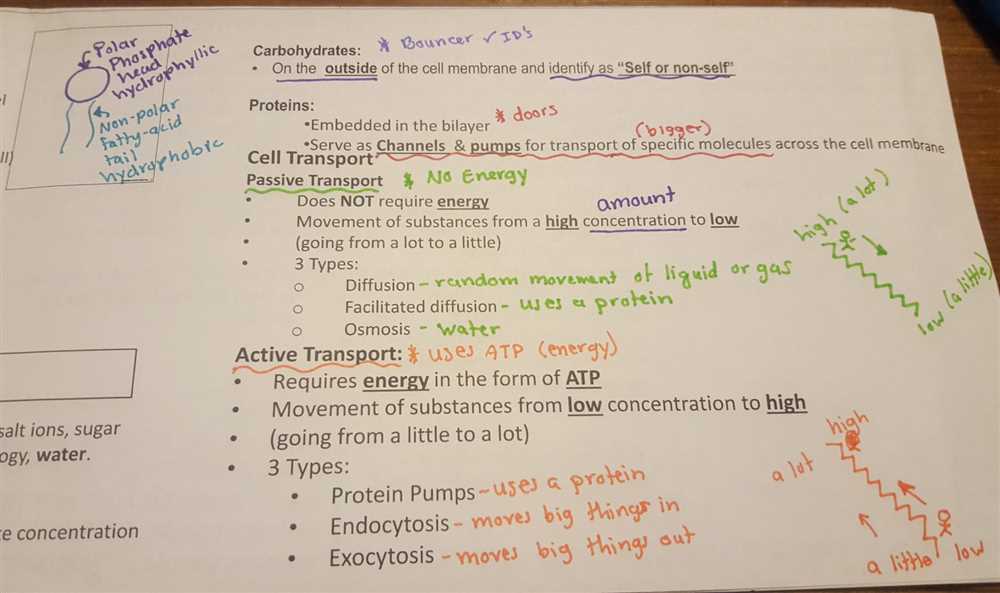 Polar
Phosphate
head
hydrophyllic
Non-polar
fatty-acid
tail
hydrophobic
Carbohydrates: * Bouncer ✓ ID's
• On the outside of the cell membrane and identify as "Self or non-self"
Proteins:
•Embedded in the bilayer * doors
(bigger)
•Serve as Channels & pumps for transport of specific molecules across the cell membrane
Cell Transport
Passive Transport * No Energy
• Does NOT require energy
amount
• Movement of substances from a high concentration to low
• (going from a lot to a little)
• 3 Types:
o Diffusion – random movement of liquid or gas
o Facilitated diffusion - uses a protein
o Osmosis - water
high (a lot)
low (a little)
Active Transport: * uses ATP (energy)
• Requires energy in the form of ATP
• Movement of substances from low concentration to high
• (going from a little to a lot)
• 3 Types:
• Protein Pumps – uses a protein
• Endocytosis – moves big things in
• Exocytosis – moves big things out
high
a lot
a little
low
salt ions, sugar
ogy, water.
concentration